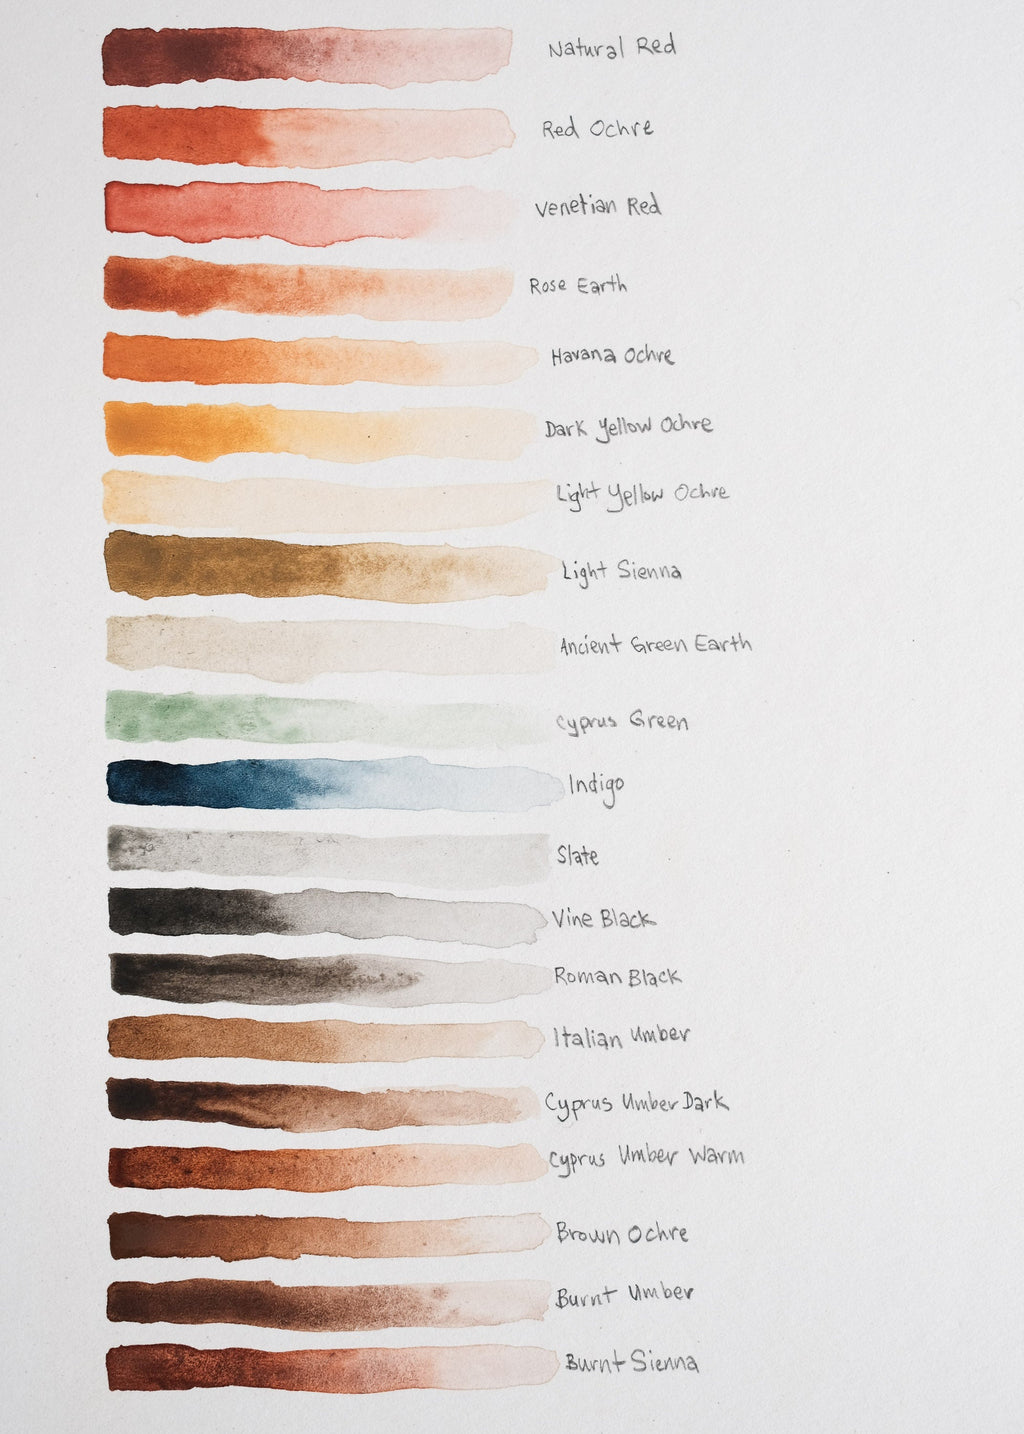 Natural Red
Red Ochre
Venetian Red
Rose Earth
Havana Ochre
Dark Yellow Ochre
Light Yellow Ochre
Light Sienna
Ancient Green Earth
Cyprus Green
Indigo
Slate
Vine Black
Roman Black
Italian Umber
Cyprus Umber Dark
Cyprus Umber Warm
Brown Ochre
Burnt Umber
Burnt Sienna